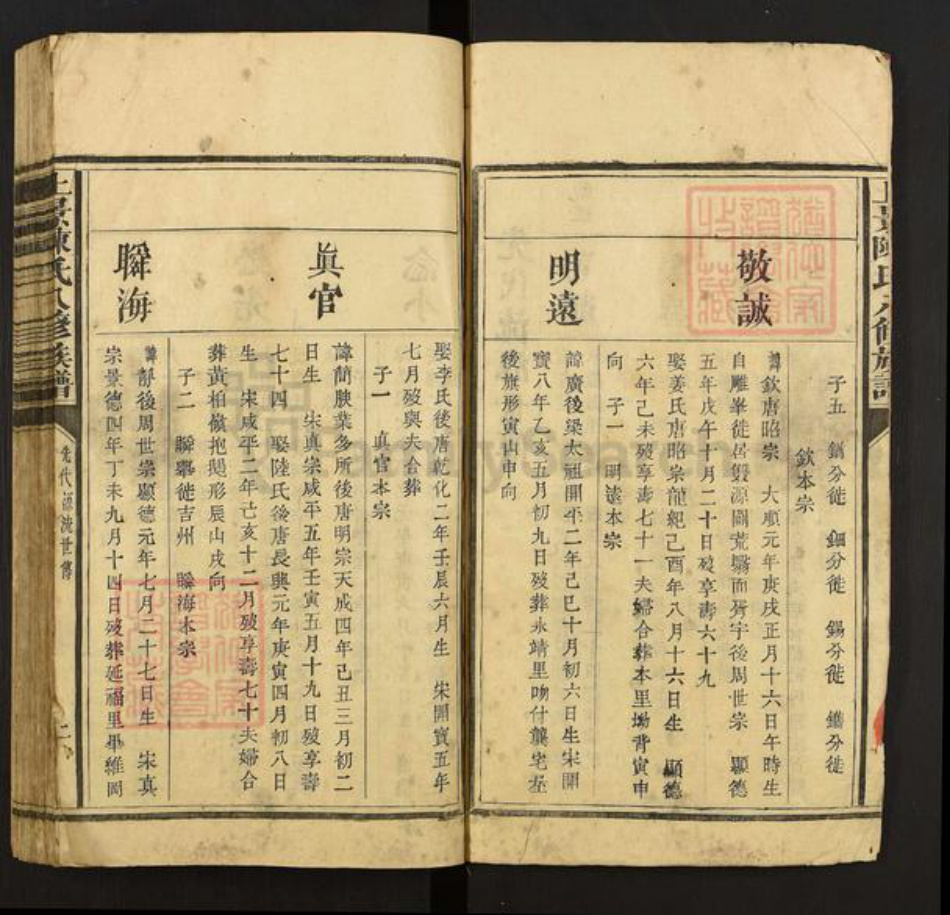 子五 分徙 鈿分徙 錫分徙 鐫分徙
欽本宗
敬誠
諱欽唐昭宗 大順元年庚戌正月十六日午時生
自雕峯徙居雙源闢荒翳而胥宇後周世宗 顯德
五年戊午十月二十日歿享壽六十九
娶姜氏唐昭宗龍紀己酉年八月十六日生 顯德
六年己未歿享壽七十一夫婦合葬本里坳背寅申
向 子一 明遠本宗
明遠
諱廣後梁太祖開平二年己巳十月初六日生宋開
寶八年乙亥五月初九日歿葬永靖里吻什龔宅左
後旗形寅山申向
娶李氏後唐乾化二年壬辰六月生 宋開寶五年
七月歿與夫合葬
子一 眞官本宗
眞官
諱蕳腴業多所後唐明宗天成四年己丑三月初二
日生 宋真宗咸平五年壬寅五月十九日歿享壽
七十四 娶陸氏後唐長興元年庚寅四月初八日
生 宋咸平二年己亥十二月歿享壽七十夫婦合
葬黃柏嶺抱兒形辰山戌向
子二 瞬舉徙吉州 瞬海本宗
瞬海
諱靜後周世宗顯德元年七月二十七日生 宋真
宗景德四年丁未九月十四日歿葬延福里畢維岡
上景陳氏八修族譜
先代源流世傳
二